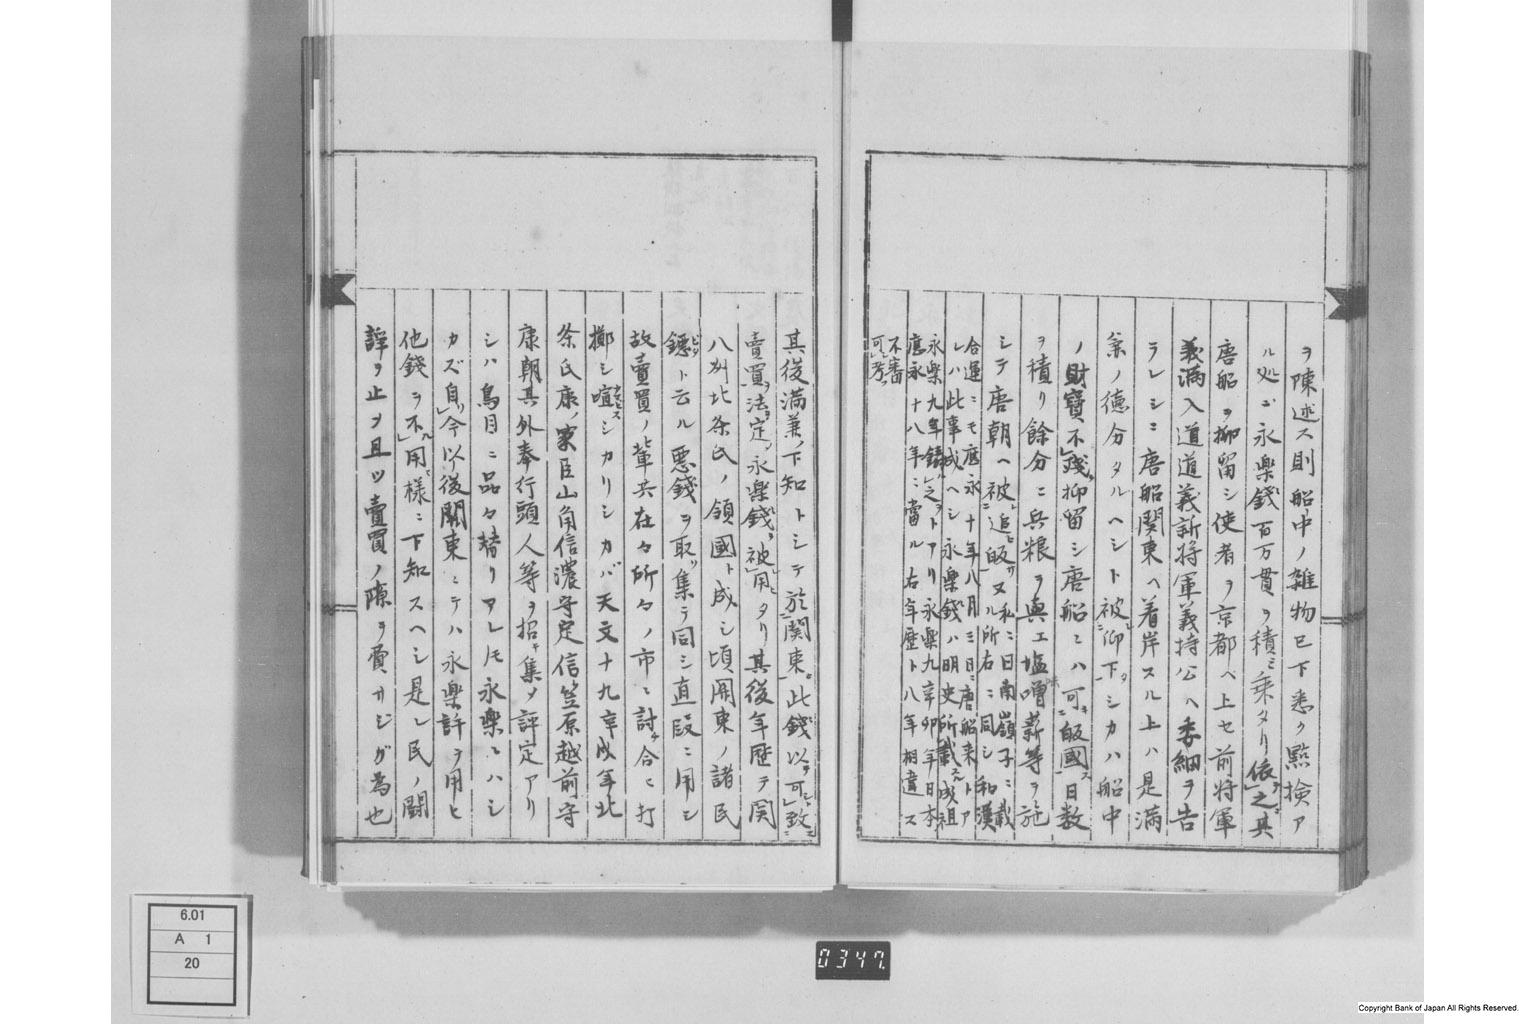 ヲ陳述ス則船中ノ雑物已下悉ク點撿ア
ル処ニ永楽銭百万貫ヲ積ミ乗タリ依之其
唐船ヲ抑留シ使者ヲ京都ヘ上セ前将軍
義満入道道義新将軍義持公ヘ委細ヲ告
ラレシニ唐船関東ヘ着岸スル上ハ是満
兼ノ徳分タルヘシト被仰下シカハ船中
ノ財寶不残抑留シ唐船ニハ可皈國日数
ヲ積リ餘分ニ兵粮ヲ與エ塩噌薪等ヲ施
シテ唐朝ヘ被追皈又私ニ曰南嶺子ニ載
ル所右ニ同シ和漢
合運ニモ應永十年八月三日ニ唐船来トア
レハ此事成ヘシ永楽銭ハ明史所載成祖
永楽九年鑄之トアリ永楽九辛卯年日本
應永十八年ニ當ル右年歴ト八年相違ス
不審
可考
其後満兼ノ下知トシテ於関東此銭以可致
賣買法定永楽銭被用タリ其後年歴テ関
八州北条氏ノ領國ト成シ頃関東ノ諸民
鐚ト云ル悪銭ヲ取集テ同シ直段ニ用シ
故賣買ノ輩共在々所々ノ市ニ討合ニ打
擲シ喧シカリシカバ天文十九辛戌年北
条氏康ノ家臣山角信濃守定信笠原越前守
康朝其外奉行頭人等ヲ招集メ評定アリ
シハ鳥目ニ品々替リアレ𪜈永楽ニハシ
カズ自今以後關東ニテハ永楽許ヲ用ヒ
他銭ヲ不用様ニ下知スヘシ是レ民ノ闘
諍ヲ止ヲ且ツ賣買ノ隙ヲ費サジガ為也
6.01
A 1
20
0347
Copyright Bank of Japan All Rights Reserved.